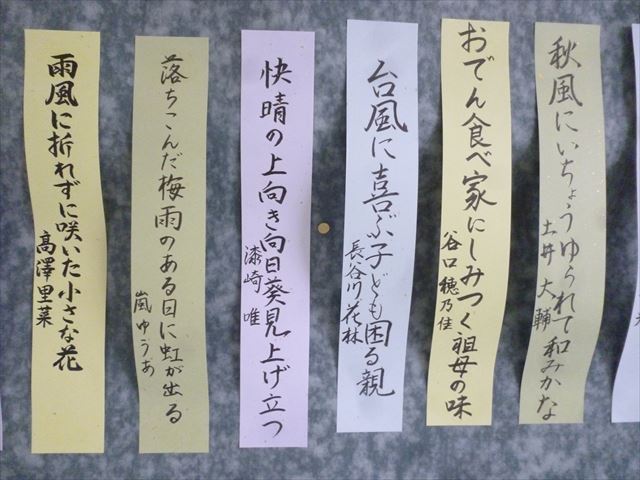 秋風にいちょうゆられて和みかな
土井 大輔
おでん食べ家にしみつく祖母の味
谷口 穂乃佳
台風に喜ぶ子ども困る親
長谷川花林
快晴の上向き向日葵見上げ立つ
漆崎 唯
落ちこんだ梅雨のある日に虹が出る
嵐ゆうあ
雨風に折れずに咲いた小さな花
高澤里菜